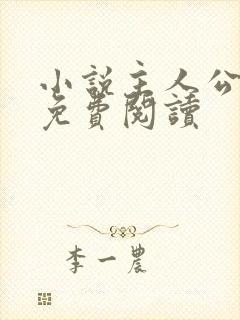 小說主人公
免費閱讀
李一農